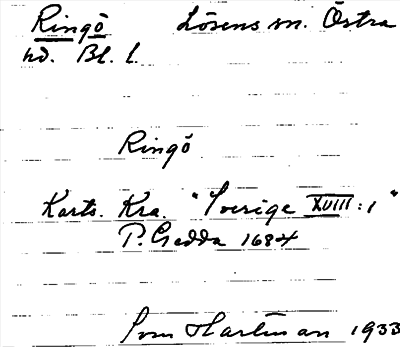 Ringö Lösens sn. Östra
hd. Bl. l.
Ringö
Karts. Kra. "Sverige XVIII:1"
P. Gedda 1684
Sven Hartman 1933